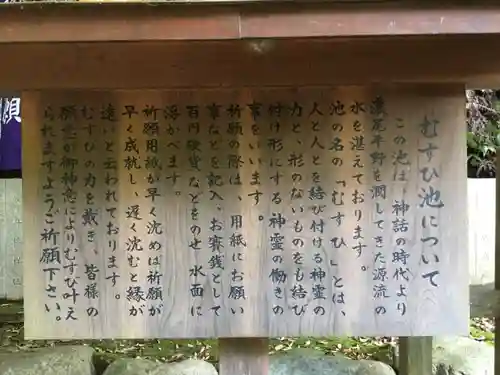 むすひ池について
この池は、神話の時代より
濃尾平野を潤してきた源流の
水を湛えております。
池の名の「むすひ」とは、
人と人とを結び付ける神霊の
力と、形のないものをも結び
付け形にする神霊の働きの
事をいいます。
祈願の際は、用紙にお願い
事などを記入、お賽銭として
百円硬貨などをのせ、水面に
浮かべます。
祈願用紙が早く沈めば祈願が
早く成就し、遅く沈むと縁が
遠いと云われております。
むすひの力を戴き、皆様の
願意が御神意によりむすび叶え
られますようご祈願下さい。
願